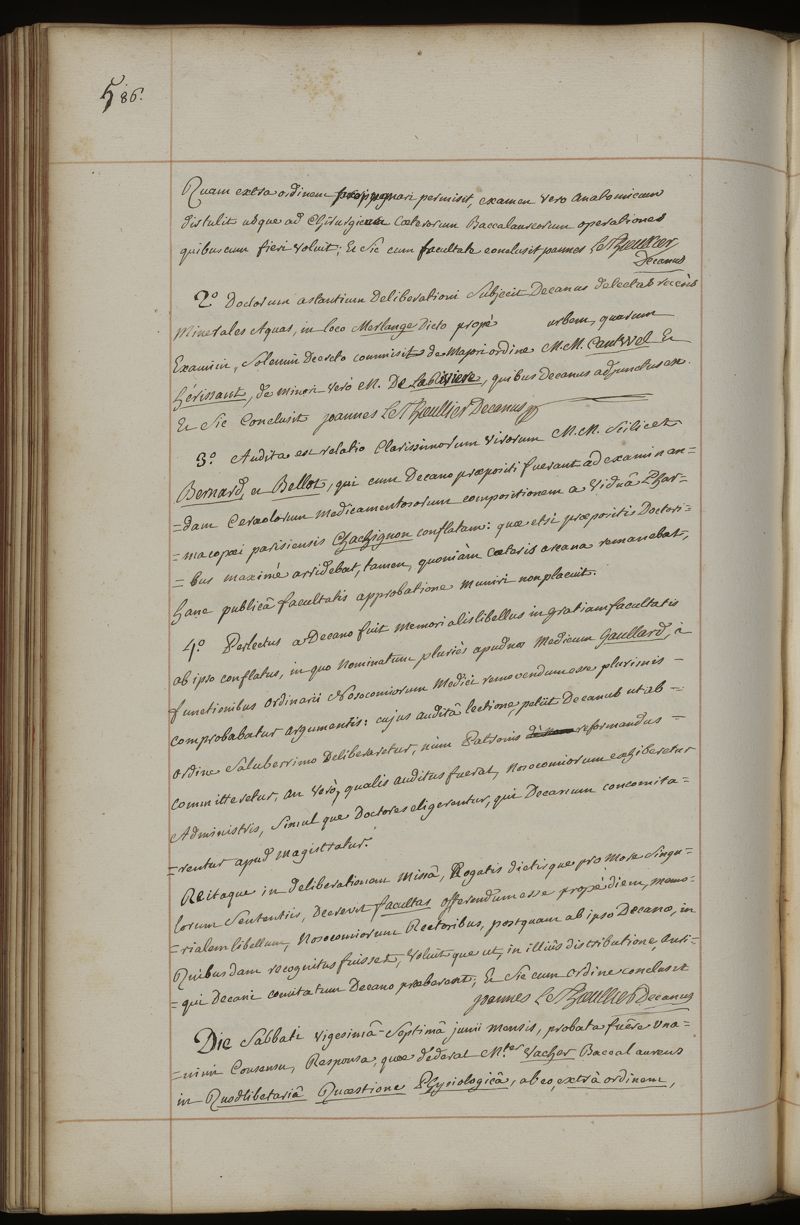 586.
Quam extra ordinem propugnari permisit, examen vero anatomicum
distulit usque ad Chirurgicam Cæterorum Baccalaureorum operationes
quibuscum fieri voluit; Et Sic cum facultate conclusit joannes Le Thieullier
Decanus
2.o Doctorum astantium Deliberationi Subjecit Decanus detectas recèns
Minerales Aquas, in loco Merlange Dicto propè urbem, quarum
Examini, Solemni Decreto commisit de Majori ordine M.M. Cantwel Et
hérissant, de minori verò M. De Lablriviere, quibus Decanus adjunctus est.
Et Sic Conclusit joannes Le Thieullier Decanus
3.o Audita est relatio Clarissimorum Virorum M.M. Scilicet
Bernard, et Bellot, qui cum Decano præpositi fuerant ad examinan=
=dam Ceraolorum medicamentosorum compositionem a Viduâ Phar=
=macopæi parisiensis Chachignon conflatam: quæ etsi præpositis Doctori=
=bus maximè arridebat, tamen, quoniàm cæteris arcana remanebat,
hanc publicâ facultatis approbatione muniri non placuit.
4.o Perlectus a Decano fuit Memorialis libellus in gratiam facultatis
ab ipso conflatus, in quo Nominatum pluriès apud nos Medicum Gaullard, à
functionibus ordinarii Nosocomiorum Medici removendum esse plurimis
comprobabatur argumentis: cujus auditâ lectione, petiit Decanus ut ab
ordine Saluberrimo Deliberaretur, nùm Patronis reformandus
committeretur, an Verò, qualis auditus fuerat, Nosocomiorum exhiberetur
Administris, Simul que Doctores eligerentur, qui Decanum concomita=
=rentur apud Magistratus.
Re itaque in deliberationem missâ, Rogatis dictisque pro More Singu=
lorum Sententiis, Decrevit facultas offerendum esse propè diem, memo=
=rialem libellum, Nosocomiorum Rectoribus, postquam ab ipso Decano, in
Quibusdam recognitus fuisset, Voluit que ut, in illiùs distributione, Anti=
=qui Decani comitatum Decano præberent; Et Sic cum ordine conclusit
joannes Le Thieullier Decanus
Die Sabbati vigesimâ-Septimâ junii mensis, probata fuêre una=
=nimi Consensu, Responsa, quæ dederat M.ter Vacher Baccalaureus
in Quodlibetariâ Quæstione Physiologicâ, ab eo, extrà ordinem,